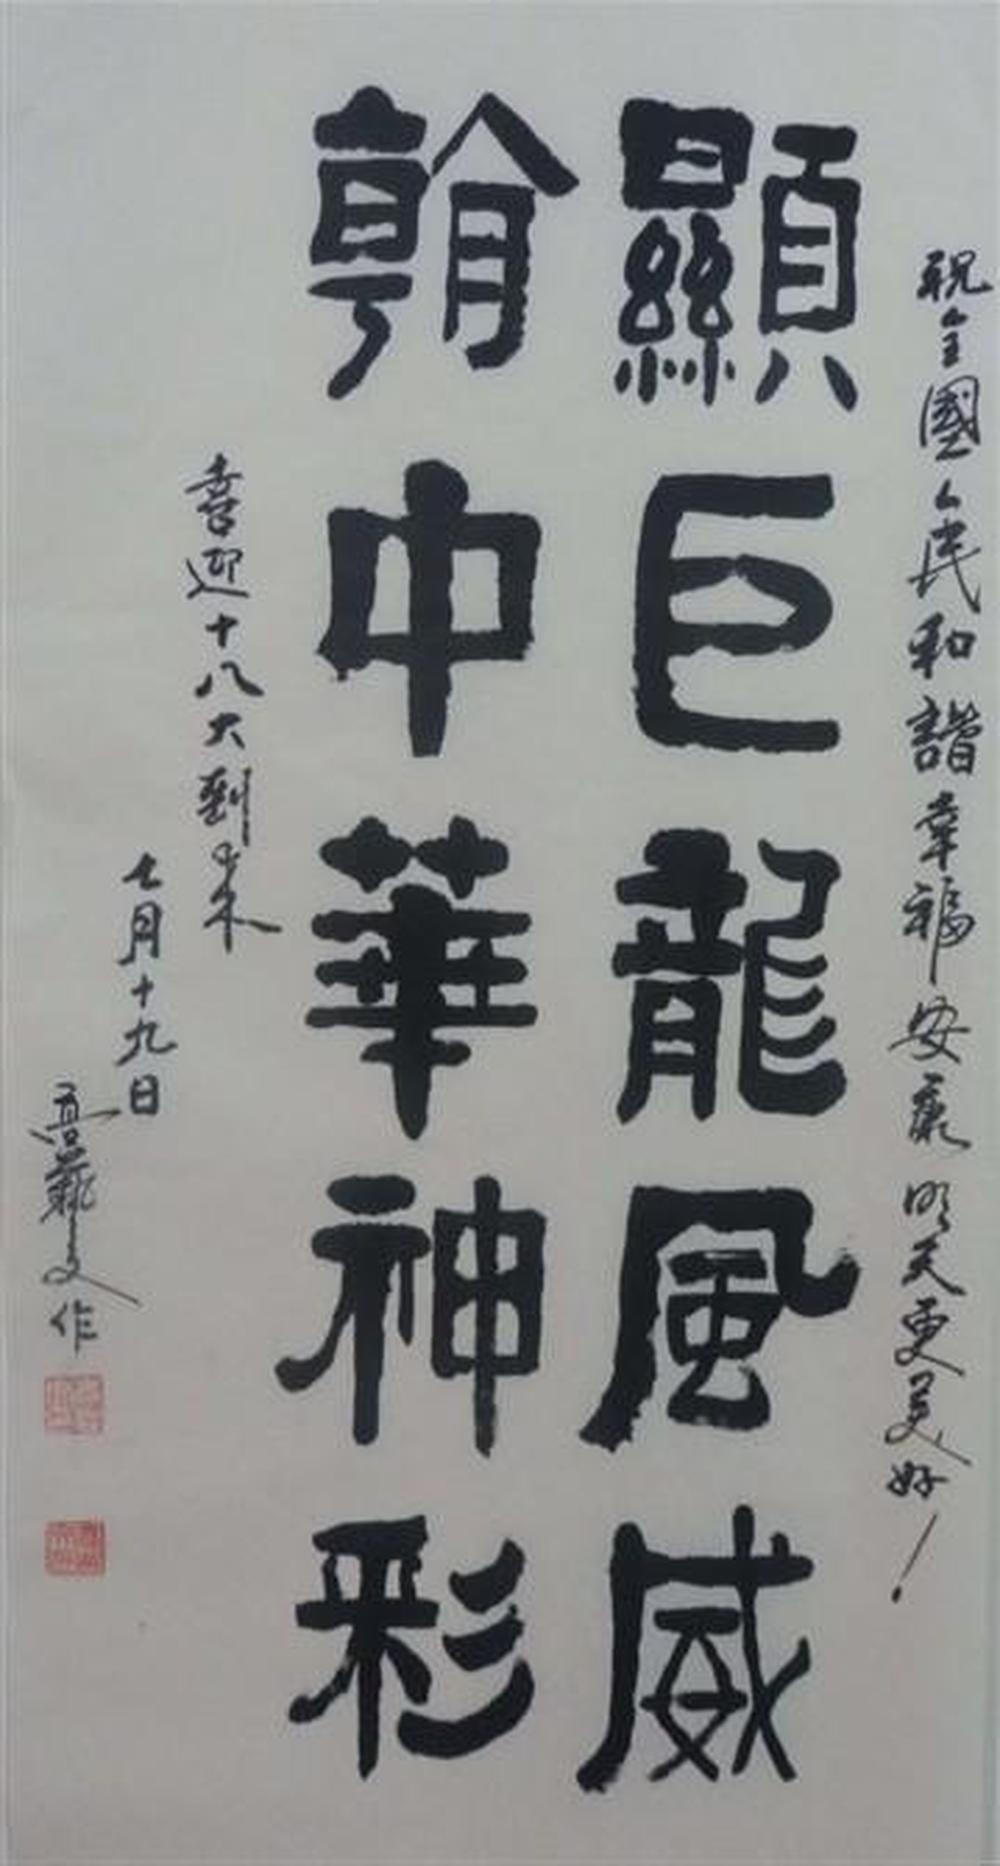 祝全國人民和諧幸福安康明天更美好!
顯巨龍風威
朝中華神彩
喜迎十八大到来
七月十九日
文作